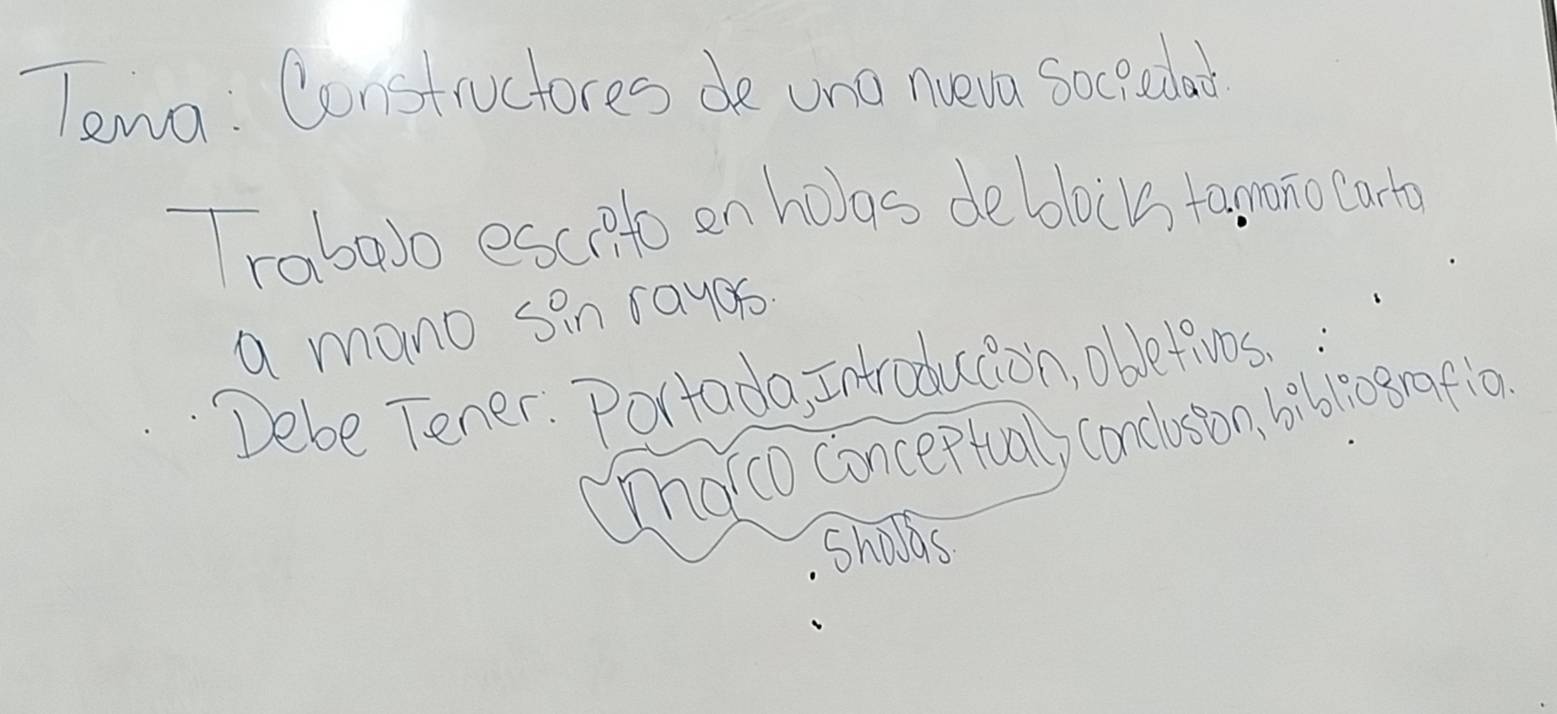 Tema: Constructores de una nueva Sociedad.
Trabajo escrito en hojas de block tamaño carta
a mano sin rayas.
Debe Tener: Portada, Introducción, objetivos.
marco conceptual, conclusion, bibliografía.
5 hojas.